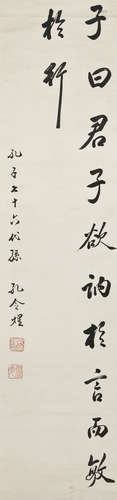 子曰君子欲訥於言而敏
於行
孔子七十六代孫 孔令熠